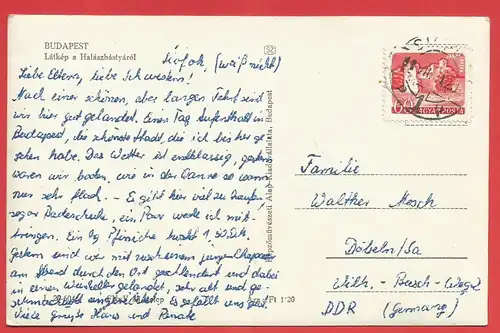 BUDAPEST
Látkép a Halászbástyáról
Siófok, (weiß nicht)
Liebe Eltern, liebe Schwestern!
Nach einer schönen, aber langen Fahrt sind
wir hier gut gelandet. Einen Tag Aufenthalt in
Budapest, die schönste Stadt, die ich bis her ge-
sehen habe. Das Wetter ist erstklassig, gestern
waren wir baden, wie in der Wanne so warm
nur sehr flach. - Es gibt hier viel zu kaufen,
sogar Badeschuhe, ein Paar werde ich mit-
bringen. Ein kg Pfirsiche kostet 1,50 DM.
Gestern sind wir mit noch einem jungen Ehepaar
am Strand durch den Ort geschlendert und dabei
in einem Weinkeller gelandet, sehr alt und ge-
schmackvoll eingerichtet. Es gefällt uns gut.
Viele Grüße Hans und Renate
Képzőművészeti Alap Kiadóvállalata, Budapest
Ára Ft 1·20
60
MAGYAR POSTA
Familie
Walther Mosch
Döbeln/Sa
Wilh.-Busch-Weg 2
DDR (Germany)